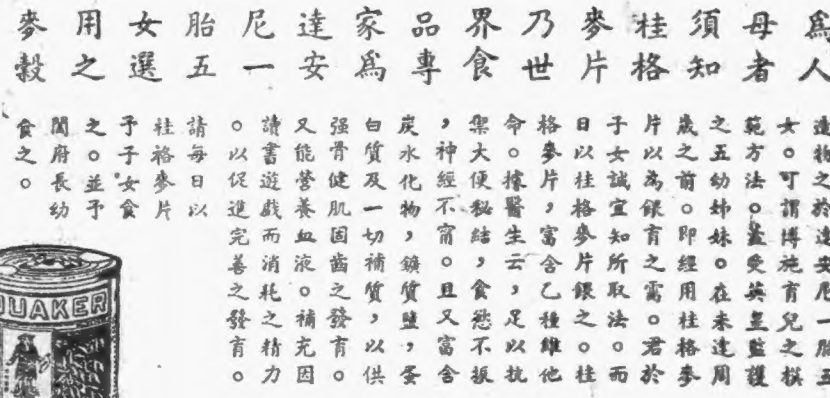 為人
母者
須知
桂格
麥片
乃世
界食
品專
家為
達安
尼一
胎五
女選
用之
麥穀
造物之於達安尼一胎五
女。可謂博施育兒之模
範方法。蓋受英皇監護
之五幼姊妹。在未達周
歲之前。即經用桂格麥
片以為餵育之需。君於
子女誠宜知所取法。而
日以桂格麥片餵之。桂
格麥片,富含乙種維他
命。據醫生云,足以抗
禦大便秘結,食慾不振
,神經不甯。且又富含
炭水化物,鑛質鹽,蛋
白質及一切補質,以供
强骨健肌固齒之發育。
又能營養血液。補充因
讀書遊戲而消耗之精力
。以促進完善之發育。
請每日以
桂格麥片
予子女食
之。並予
閤府長幼
食之。
QUAKER